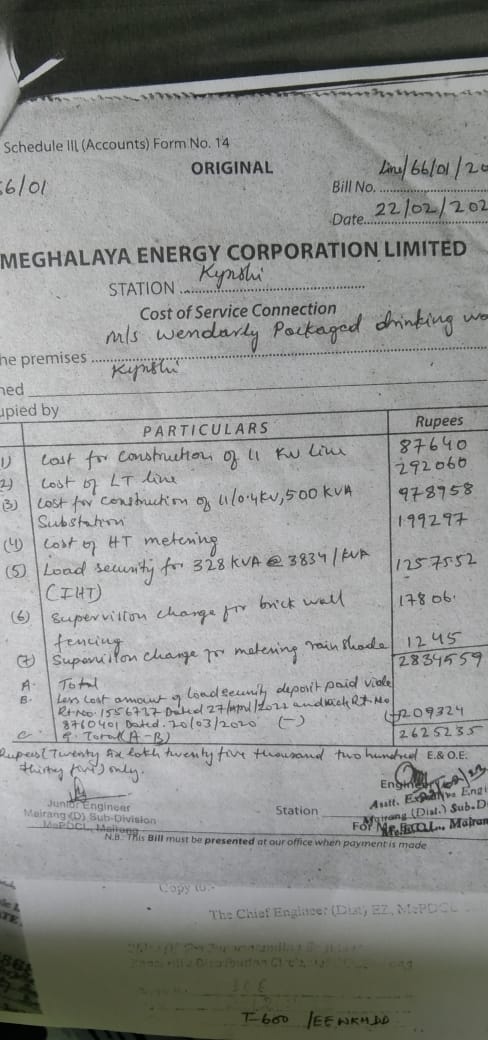 Schedule III (Accounts) Form No. 14
ORIGINAL
56/01
Bill No. Line/66/01/20
Date. 22/02/202
MEGHALAYA ENERGY CORPORATION LIMITED
STATION Kynshi
Cost of Service Connection
M/s Wendarly Packaged drinking wa
he premises
Kynshi
ned
upied by
PARTICULARS Rupees
1) Cost for Construction of 11 KV line 87640
2) Cost of LT line 292060
(3) Cost for construction of 11/0.4KV, 500 KVA 978958
Substation
(4) Cost of HT metering 199297
(5) Load security for 328 KVA @ 3834/KVA 1257552
(IHT)
(6) Supervision charge for brick wall 17806.
fencing
(7) Supervision charge for metering rain shade 1245
A. Total 2834559
B. Less cost amount of load security deposit paid vide
Rt. No. 1556727 Dated 27/ /2022 and vide Rt. No
8760401 Dated. 20/03/2020 (-) 209324
C. G. Total (A-B) 2625235
Rupees (Twenty six lakh twenty five thousand two hundred E.& O.E.
thirty five) only.
Junior Engineer
Mairang (D) Sub-Division
MePDCL, Mairang
Station
Engineer
Asstt. Executive Engi
Mairang (Dist.) Sub.D
For MePDCL., Mairan
N.B. This Bill must be presented at our office when payment is made
Copy to:-
The Chief Engineer (Dist) EZ, MePDCL
T-600 /EENKHDD